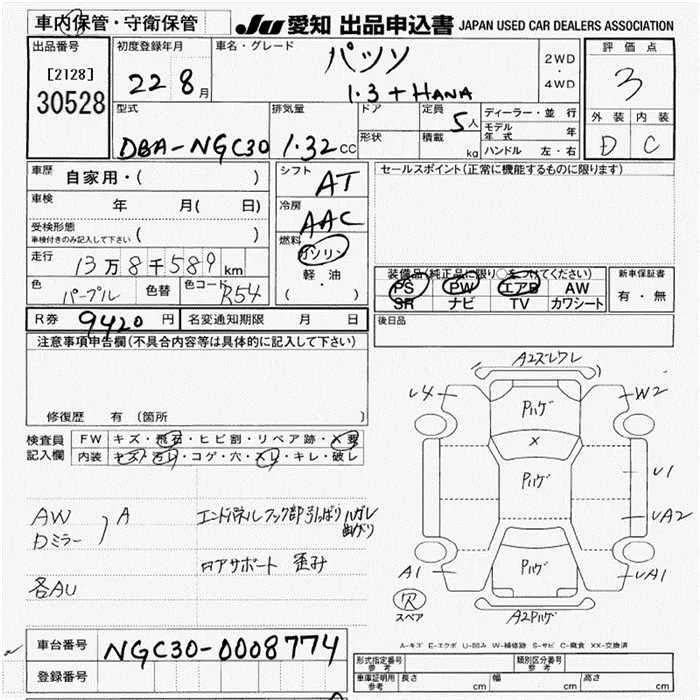 車内保管・守衛保管
JU 愛知 出品申込書 JAPAN USED CAR DEALERS ASSOCIATION
出品番号
[2128]
30528
初度登録年月
22 8月
車名・グレード
パッソ
1.3 + HANA
2WD
・
4WD
評価点
3
外装 内装
D C
型式
DBA-NGC30
排気量
1.32 cc
ドア
形状
定員
5人
積載
kg
ディーラー・並行
モデル年式 年
ハンドル 左・右
車歴 自家用・( )
車検 年 月( 日)
受検形態
車検付きのみ記入して下さい ( )
走行 13万8千589km
色 パープル 色替 色コード R54
シフト AT
冷房 AAC
燃料 ガソリン
軽・油
( ・ )
セールスポイント(正常に機能するものに限ります)
装備品(純正品に限り○をつけてください)
PS PW エアB AW
SR ナビ TV カワシート
新車保証書
有・無
R券 9420 円 名変通知期限 月 日
後日品
注意事項申告欄(不具合内容等は具体的に記入して下さい)
修復歴 有 (箇所 )
検査員記入欄
FW キズ・飛石・ヒビ割・リペア跡・X要
内装 キズ・汚レ・コゲ・穴・スレ・キレ・破レ
AW
Dミラー
A
各AU
エンドパネルフック部引っぱり ハガレ
曲がり
コアサポート 歪み
A2ズレワレ
U4
W2
Pハゲ
X
Pハゲ
U1
UA2
Pハゲ
A1
UA1
A2Pハゲ
スペア
A-キズ E-エクボ U-凹み W-補修跡 S-サビ C-腐食 XX-交換済
車台番号 NGC30-0008774
登録番号
形式指定番号
参考
類別区分番号
参考
車庫証明用
参考
長さ cm 幅 cm 高さ cm